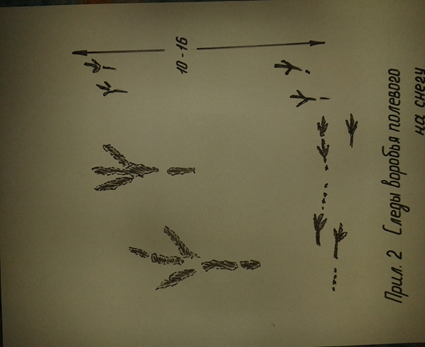 10 - 16
Прил. 2 Следы воробья полевого
на снегу